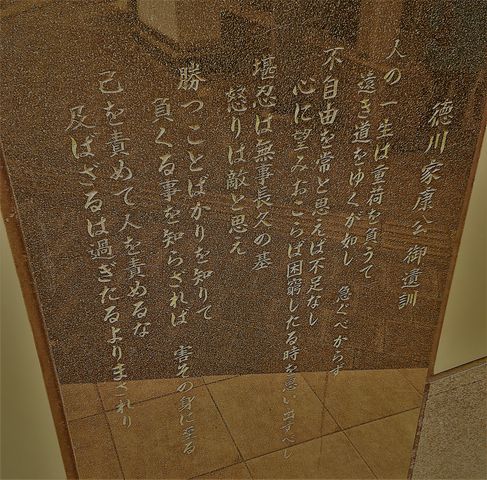 徳川家康公御遺訓
人の一生は重荷を負うて
遠き道をゆくが如し 急ぐべからず
不自由を常と思えば不足なし
心に望みおこらば困窮したる時を思い出すべし
堪忍は無事長久の基
怒りは敵と思え
勝つことばかりを知りて
負くる事を知らざれば 害その身に至る
己を責めて人を責めるな
及ばざるは過ぎたるよりまされり